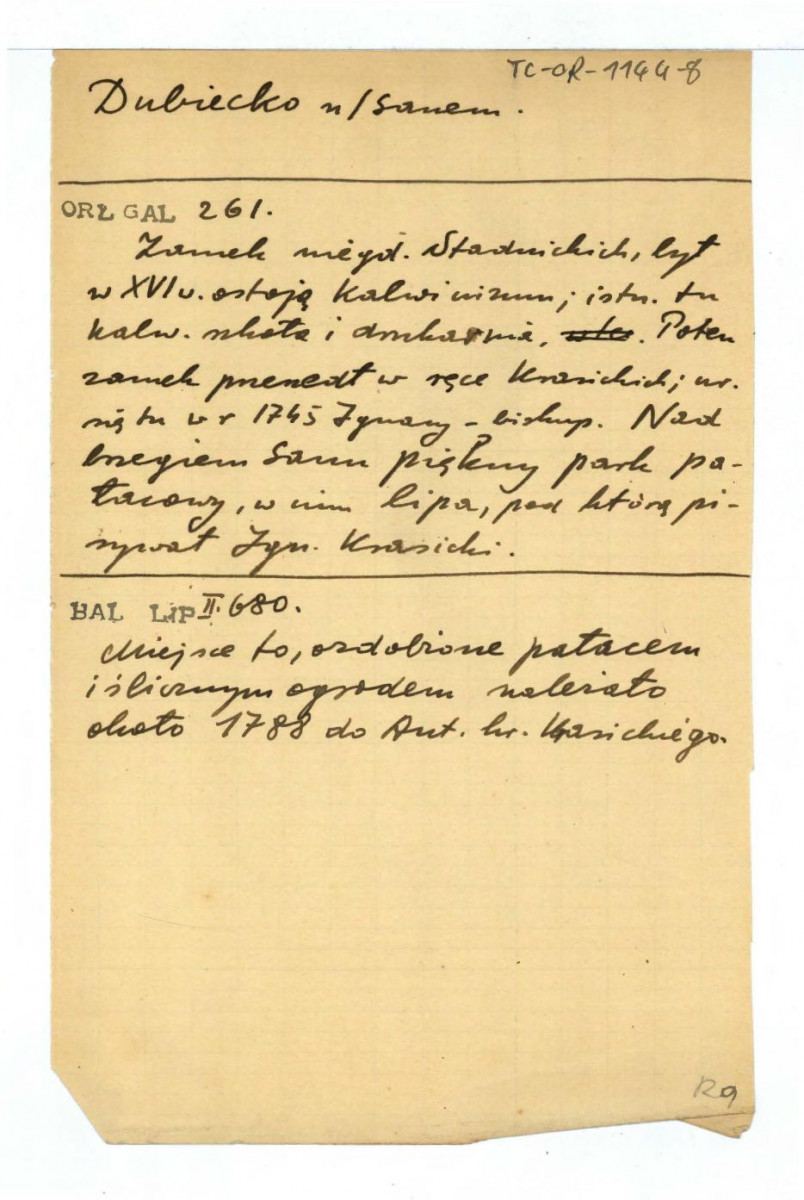 TC-OR-1144-8
Dubiecko n/Sanem.
ORŁ GAL 261.
Zamek niegd. Stadnickich, był
w XVI w. ostoją Kalwinizmu; istn. tu
kalw. szkoła i drukarnia, . Potem
zamek przeszedł w ręce Krasickich; ur.
się tu w r 1745 Ignacy – biskup. Nad
brzegiem Sanu piękny park pa-
łacowy, w nim lipa, pod którą pi-
sywał Ign. Krasicki.
BAL LIP II. 680.
Miejsce to, ozdobione pałacem
i ślicznym ogrodem należało
około 1788 do Ant. hr. Krasickiego.